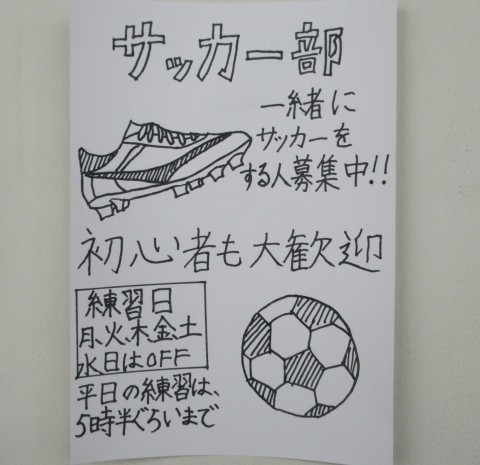 サッカー部
一緒に
サッカーを
する人募集中!!
初心者も大歓迎
練習日
月、火、木、金、土
水日はOFF
平日の練習は、
5時半ぐらいまで